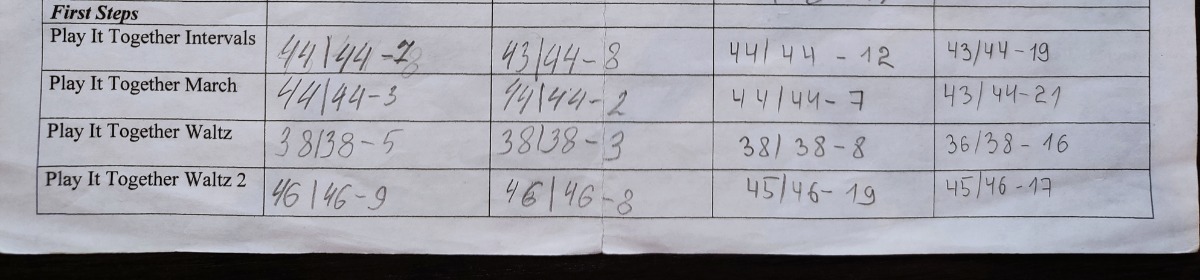 First Steps
Play It Together Intervals 44/44-7 43/44-8 44/44-12 43/44-19
Play It Together March 44/44-3 44/44-2 44/44-7 43/44-21
Play It Together Waltz 38/38-5 38/38-3 38/38-8 36/38-16
Play It Together Waltz 2 46/46-9 46/46-8 45/46-19 45/46-17